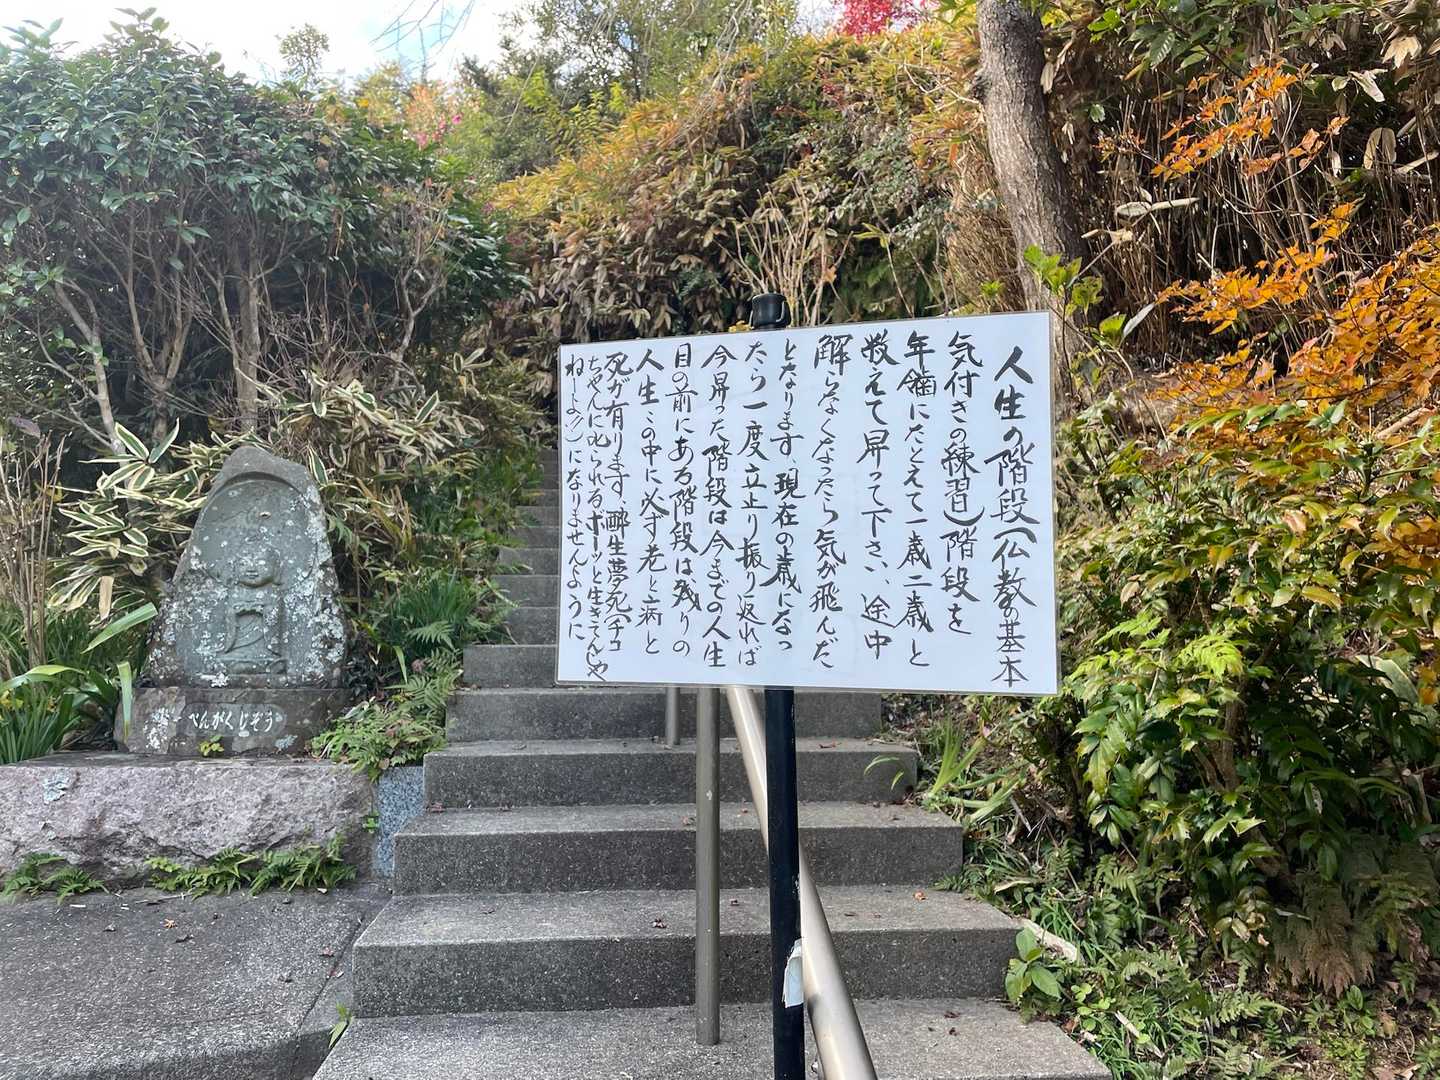 人生の階段(仏教の基本
気付きの練習)階段を
年齢にたとえて一歳二歳と
数えて昇って下さい、途中
解らなくなったら気が飛んだ
となります、現在の歳になっ
たら一度立止り振り返れば
今昇った階段は今までの人生
目の前にある階段は残りの
人生この中に必ず老と病と
死が有ります、酔生夢死(チコ
ちゃんに叱られるボーッと生きてんじゃ
ねーよ!)になりませんように
べんがくじぞう